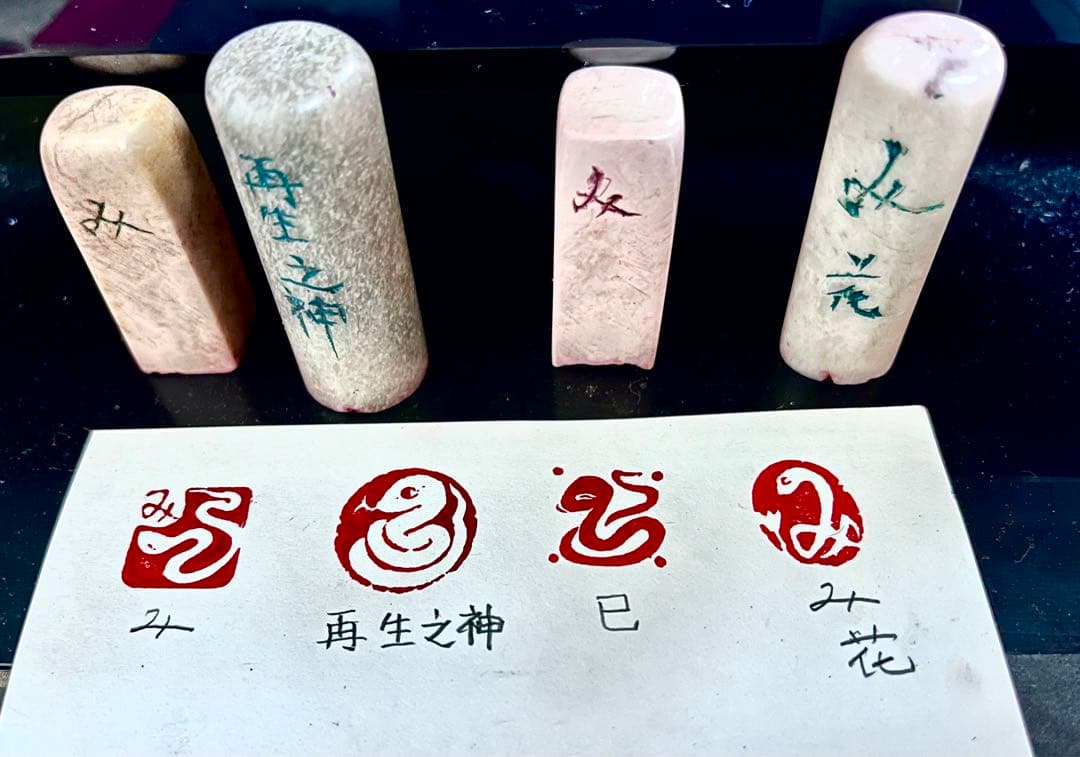 み
再生之神
み
み花
み
み
み
再生之神
巳
み花